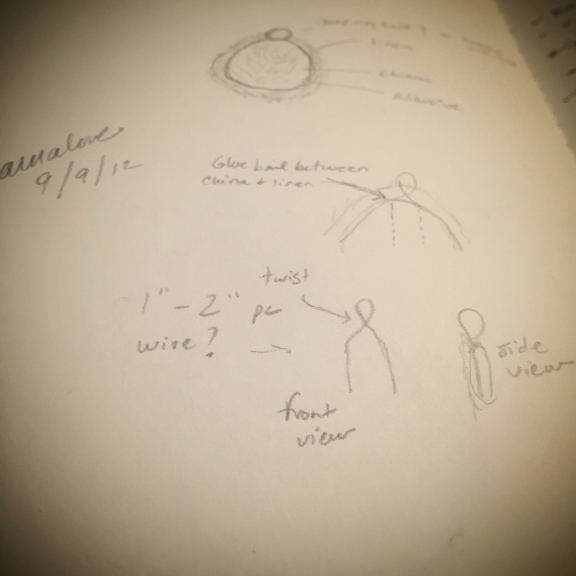 linen
adhesive
9/9/12
Glue bail between
china + linen
twist
1" - 2" pc
wire?
front
view
side
view